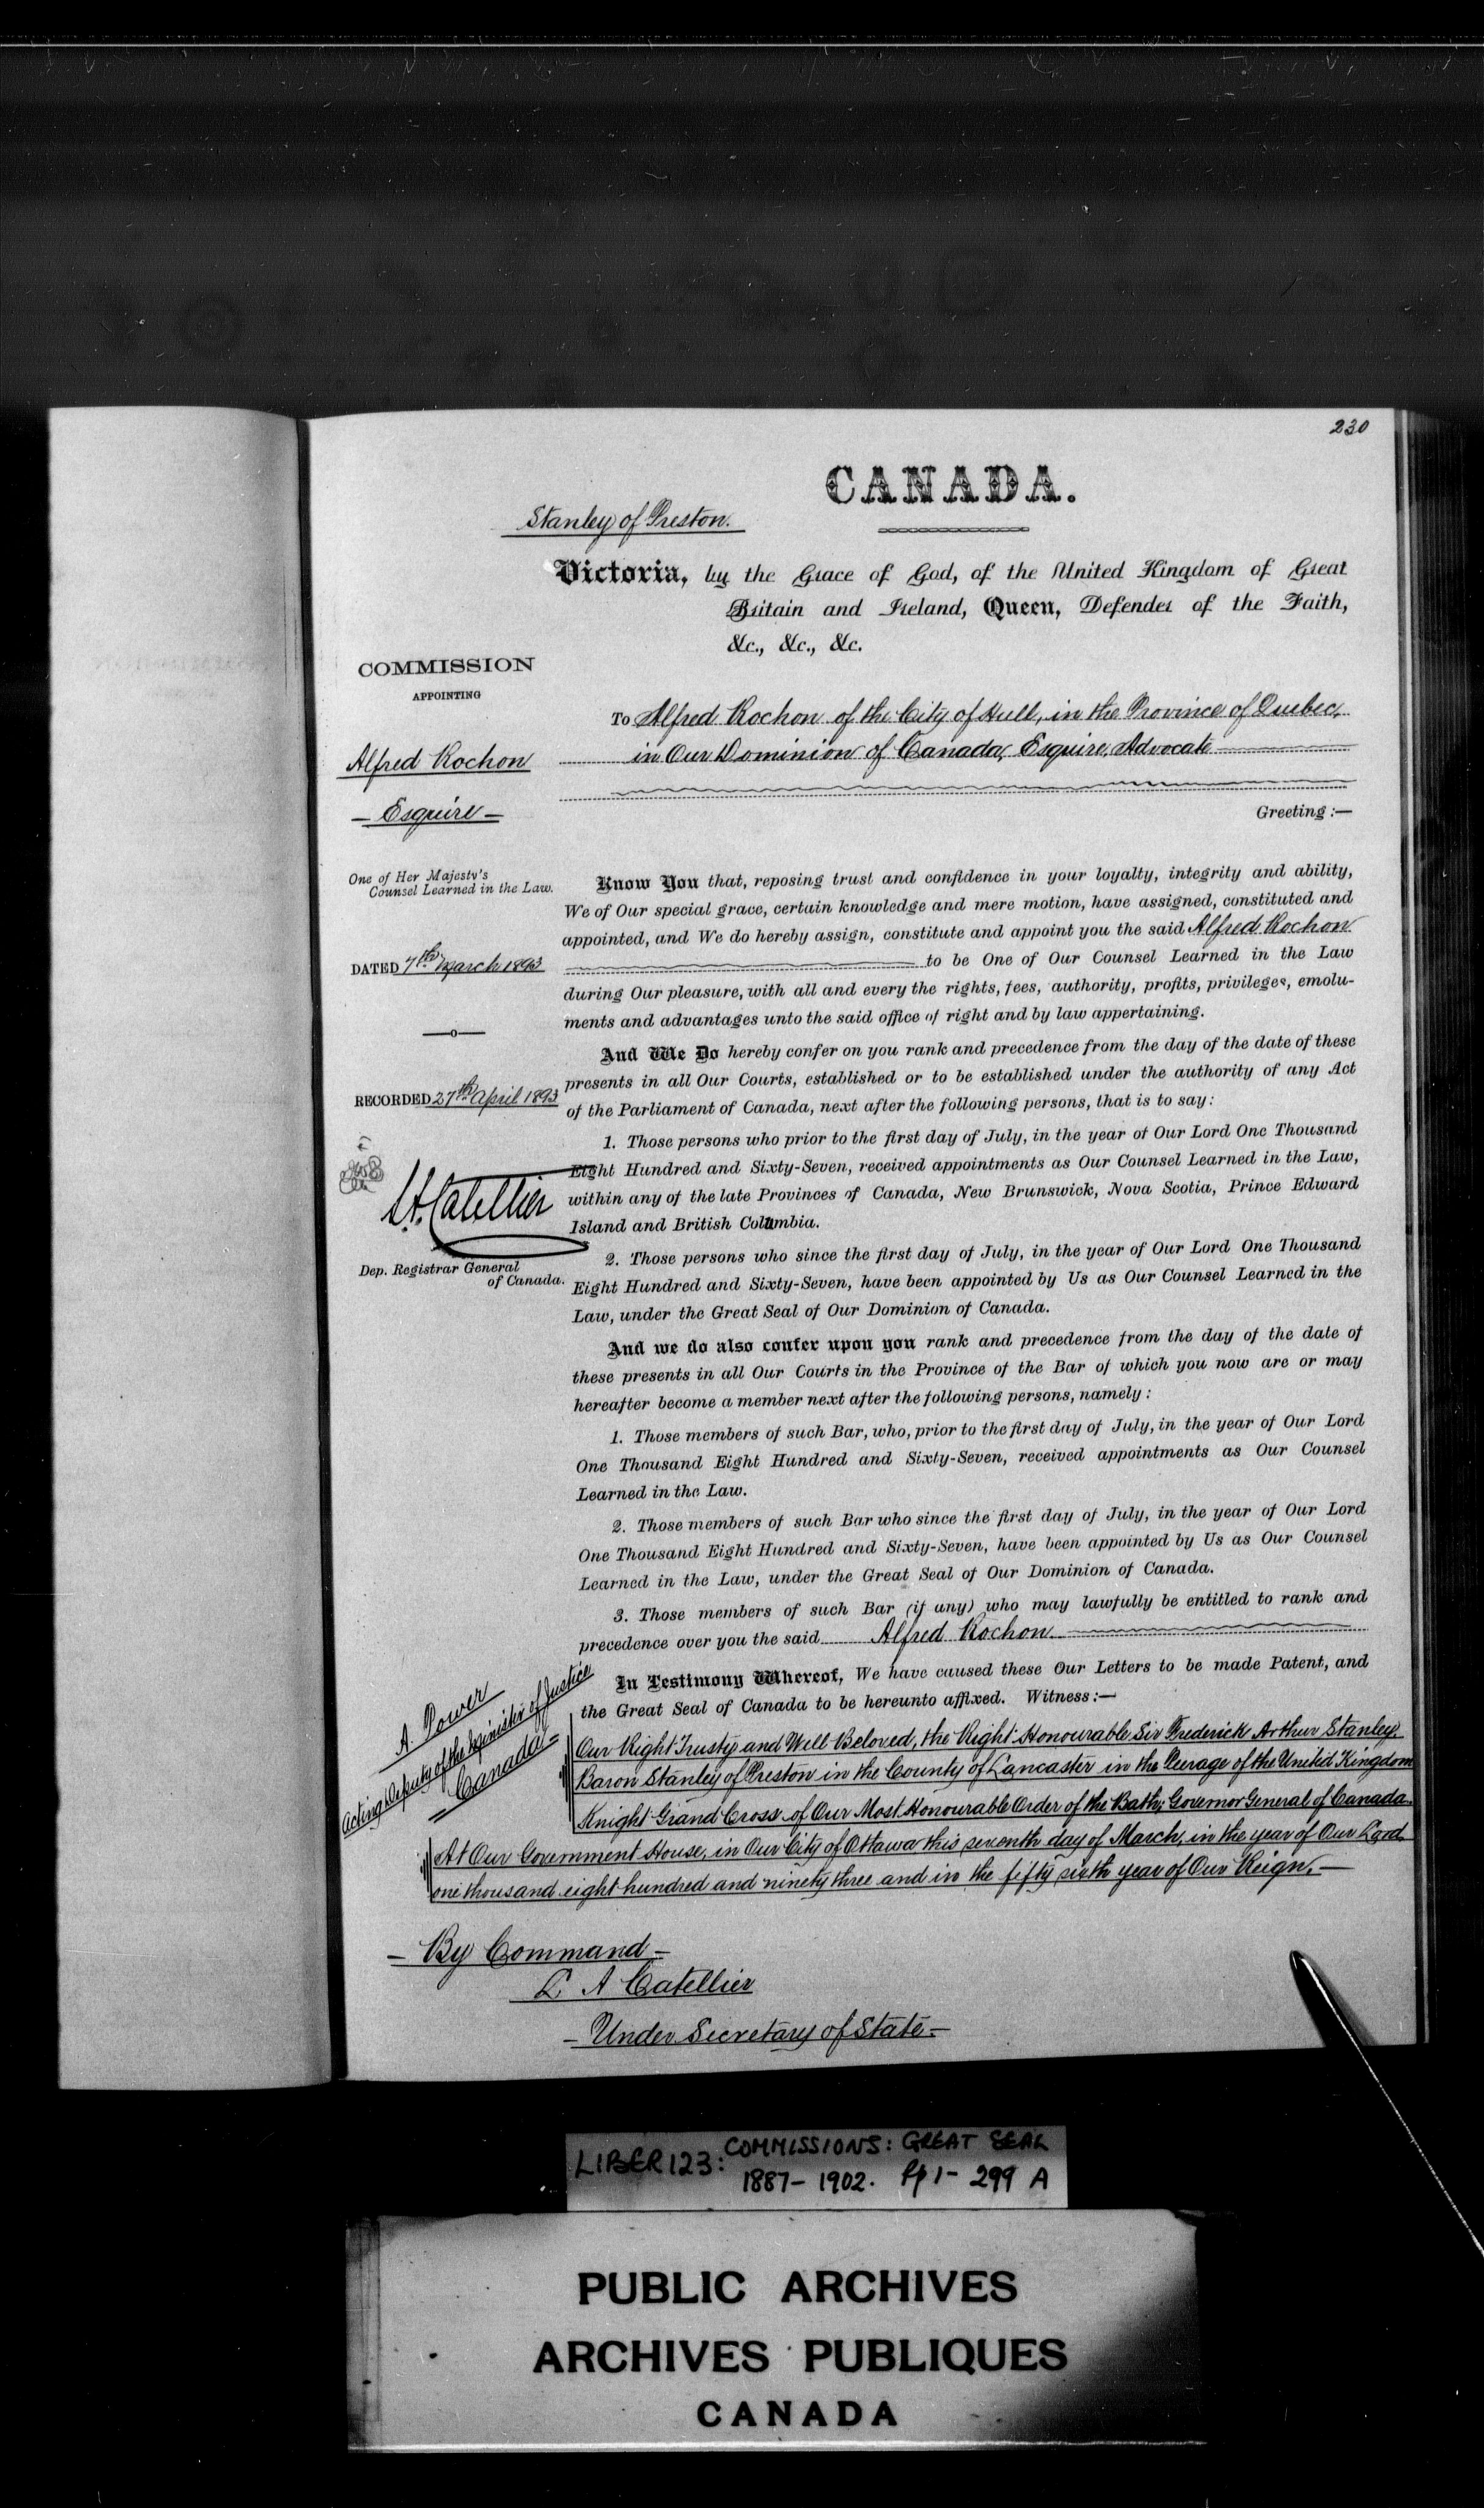 230
CANADA.
Stanley of Preston.
Victoria, by the Grace of God, of the United Kingdom of Great
Britain and Ireland, Queen, Defender of the Faith,
&c., &c., &c.
COMMISSION
APPOINTING
Alfred Rochon
— Esquire —
One of Her Majesty's
Counsel Learned in the Law.
DATED 7th March 1893
—o—
RECORDED 27th April 1893
L.A. Catellier
Dep. Registrar General
of Canada.
To Alfred Rochon of the City of Hull, in the Province of Quebec,
in Our Dominion of Canada, Esquire, Advocate
Greeting :—
Know You that, reposing trust and confidence in your loyalty, integrity and ability,
We of Our special grace, certain knowledge and mere motion, have assigned, constituted and
appointed, and We do hereby assign, constitute and appoint you the said Alfred Rochon
to be One of Our Counsel Learned in the Law
during Our pleasure, with all and every the rights, fees, authority, profits, privileges, emolu-
ments and advantages unto the said office of right and by law appertaining.
And We Do hereby confer on you rank and precedence from the day of the date of these
presents in all Our Courts, established or to be established under the authority of any Act
of the Parliament of Canada, next after the following persons, that is to say:
1. Those persons who prior to the first day of July, in the year of Our Lord One Thousand
Eight Hundred and Sixty-Seven, received appointments as Our Counsel Learned in the Law,
within any of the late Provinces of Canada, New Brunswick, Nova Scotia, Prince Edward
Island and British Columbia.
2. Those persons who since the first day of July, in the year of Our Lord One Thousand
Eight Hundred and Sixty-Seven, have been appointed by Us as Our Counsel Learned in the
Law, under the Great Seal of Our Dominion of Canada.
And we do also confer upon you rank and precedence from the day of the date of
these presents in all Our Courts in the Province of the Bar of which you now are or may
hereafter become a member next after the following persons, namely:
1. Those members of such Bar, who, prior to the first day of July, in the year of Our Lord
One Thousand Eight Hundred and Sixty-Seven, received appointments as Our Counsel
Learned in the Law.
2. Those members of such Bar who since the first day of July, in the year of Our Lord
One Thousand Eight Hundred and Sixty-Seven, have been appointed by Us as Our Counsel
Learned in the Law, under the Great Seal of Our Dominion of Canada.
3. Those members of such Bar (if any) who may lawfully be entitled to rank and
precedence over you the said Alfred Rochon
In Testimony Whereof, We have caused these Our Letters to be made Patent, and
the Great Seal of Canada to be hereunto affixed. Witness:—
A. Power
Acting Deputy of the Minister of Justice
Canada
Our Right Trusty and Well Beloved, the Right Honourable Sir Frederick Arthur Stanley,
Baron Stanley of Preston in the County of Lancaster in the Peerage of the United Kingdom
Knight Grand Cross of Our Most Honourable Order of the Bath, Governor General of Canada.
At Our Government House, in Our City of Ottawa this seventh day of March, in the year of Our Lord
one thousand eight hundred and ninety three and in the fifty sixth year of Our Reign. —
— By Command —
L A Catellier
— Under Secretary of State —
LIBER 123: COMMISSIONS: GREAT SEAL
1887 - 1902. Pp 1 - 299 A
PUBLIC ARCHIVES
ARCHIVES PUBLIQUES
CANADA